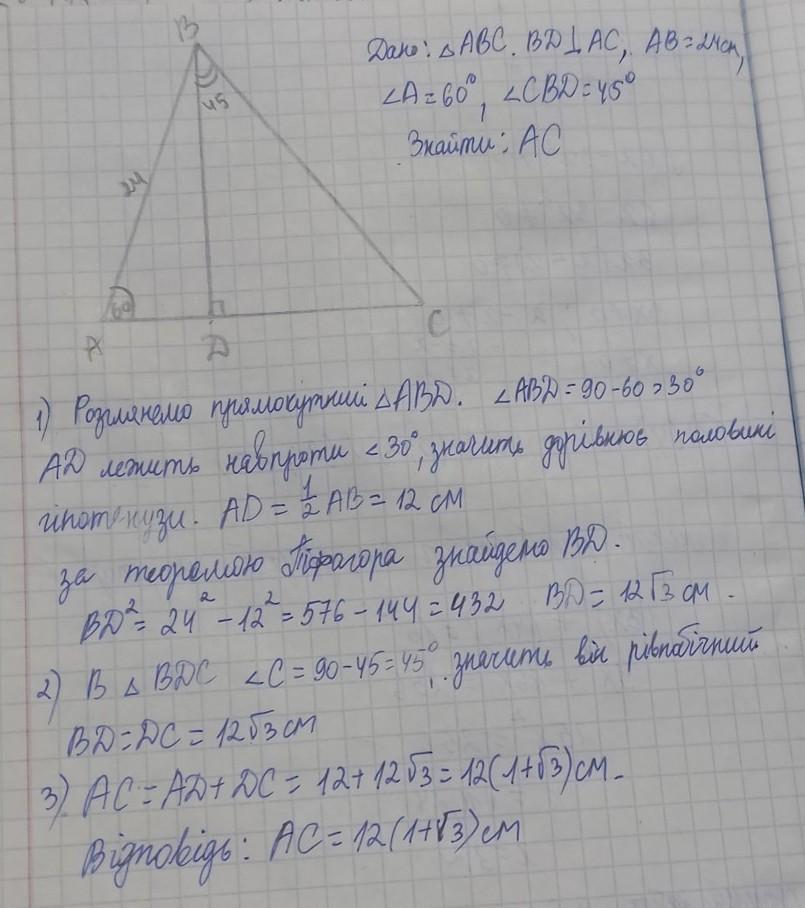 B
Дано: △ABC. BD⊥AC, AB=24см,
45
∠A=60°, ∠CBD=45°
Знайти: AC
24
60
A
D
C
1) Розглянемо прямокутний △ABD. ∠ABD=90-60=30°
AD лежить навпроти <30°, значить дорівнює половині
гіпотенузи. AD = 1/2 AB = 12 см
за теоремою Піфагора знайдемо BD.
BD² = 24² - 12² = 576 - 144 = 432 BD = 12√3 см.
2) В △ BDC ∠C = 90-45=45°, значить він рівнобічний
BD=DC = 12√3 см
3) AC = AD + DC = 12 + 12√3 = 12(1+√3) см.
Відповідь: AC = 12(1+√3) см